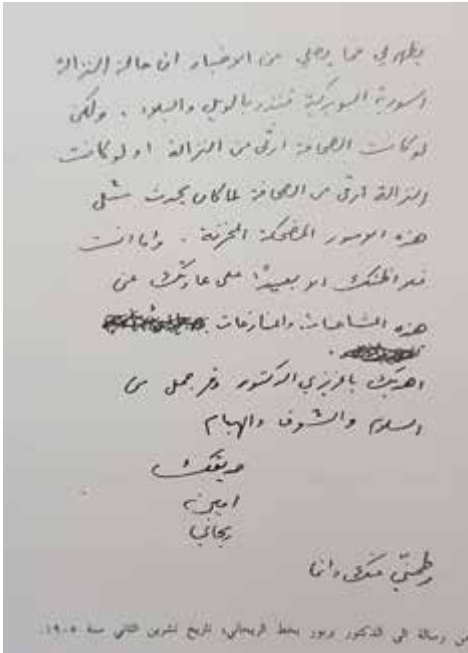 يظهر لي مما يصلني من الاخبار ان حالة النزالة
السورية النيويركية تنذر بالويل والبلاء . ولكن
لو كانت الصحافة ارقى من النزالة او لو كانت
النزالة ارقى من الصحافة لما كان يحدث مثل
هذه الامور المضحكة المحزنة . واما انت
فلا اظنك الا بعيدًا على عادتك عن
هذه المشاحنات والمنازعات
اهديك يا عزيزي الدكتور وفر جمل من
السلام والشوق والهيام
صديقك
امين
ريحاني
وطمني عنك دائما
من رسالة الى الدكتور بخط الريحاني، تاريخ تشرين الثاني سنة ١٩٠٥.